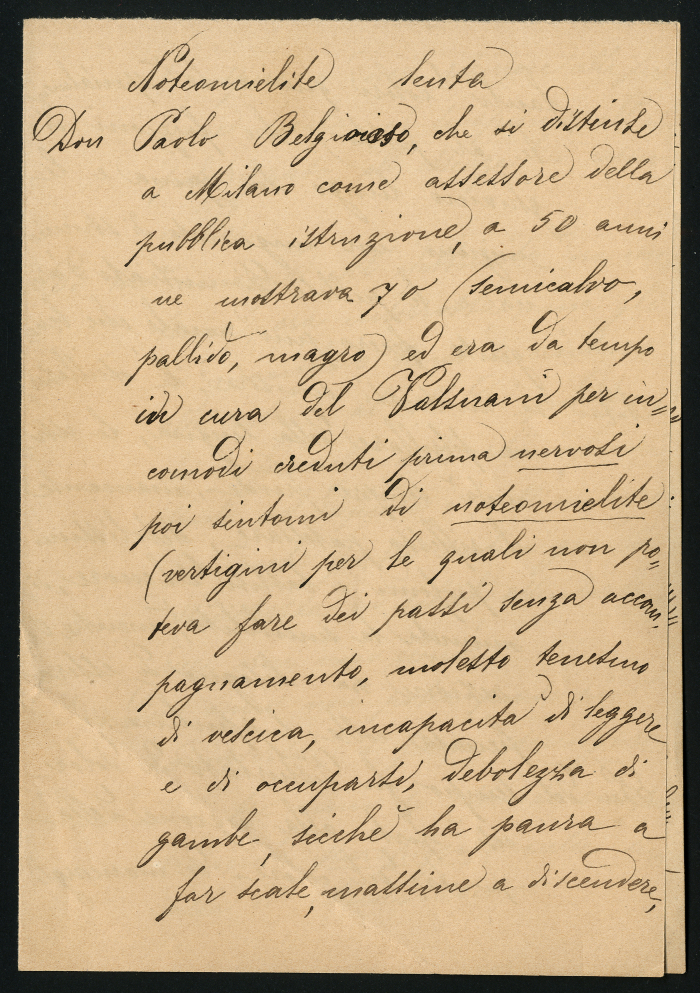 Noteomielite lenta
Don Paolo Belgioioso, che si distinse
a Milano come assessore della
pubblica istruzione, a 50 anni
ne mostrava 70 (semicalvo,
pallido, magro) ed era da tempo
in cura del Valsuani per in=
comodi creduti prima nervosi
poi sintomi di noteomielite
(vertigini per le quali non po=
teva fare dei passi senza accom=
pagnamento, molesto tenesmo
di vescica, incapacità di leggere
e di occuparsi, debolezza di
gambe, sicchè ha paura a
far scale, massime a discendere,